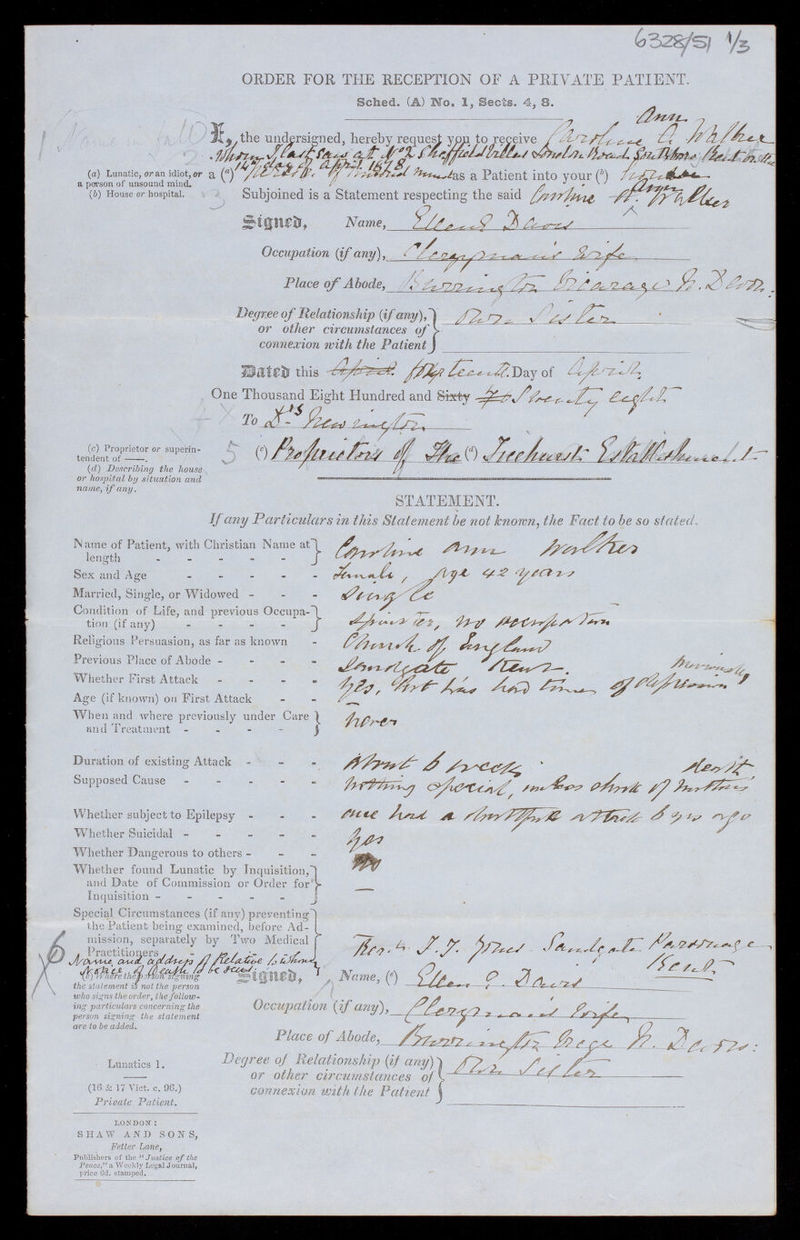 6328/51 1/3
ORDER FOR THE RECEPTION OF A PRIVATE PATIENT.
Sched. (A) No. 1, Sects. 4, 8.
Ann
I, the undersigned, hereby request you to receive Caroline A. Walker
whom I last saw at No 2 Sheffield Villas London Road Southboro, Kent on the
14th day of April 1878
a (a) person of unsound mind as a Patient into your (b) house
(a) Lunatic, or an idiot, or
a person of unsound mind.
(b) House or hospital.
Subjoined is a Statement respecting the said Caroline Ann Walker
Signed, Name, Ellen E Davis
Occupation (if any), Clergyman's Wife
Place of Abode, Burrington Vicarage N. Devon:
Degree of Relationship (if any),
or other circumstances of
connexion with the Patient
Own Sister
Dated this April fourteenth Day of April
One Thousand Eight Hundred and Sixty Seventy eight
To Drs Newington
(c) Proprietors of The (d) Ticehurst Establishment
(c) Proprietor or superin-
tendent of ——.
(d) Describing the house
or hospital by situation and
name, if any.
STATEMENT.
If any Particulars in this Statement be not known, the Fact to be so stated.
Name of Patient, with Christian Name at
length - - - - - Caroline Ann Walker
Sex and Age - - - - - Female, Age 42 years
Married, Single, or Widowed - - - Single
Condition of Life, and previous Occupa-
tion (if any) - - - - - Spinster, no occupation
Religious Persuasion, as far as known - Church of England
Previous Place of Abode - - - - Sandgate Kent
Whether First Attack - - - - Yes, but has had times of depression previously
Age (if known) on First Attack - -
When and where previously under Care
and Treatment - - - - Never
Duration of existing Attack - - - About 6 weeks
Supposed Cause - - - - - Nothing special, unless shock of mother's death
Whether subject to Epilepsy - - - once had a doubtful attack 6 yrs ago
Whether Suicidal - - - - - Yes
Whether Dangerous to others - - - No
Whether found Lunatic by Inquisition,
and Date of Commission or Order for
Inquisition - - - - - —
Special Circumstances (if any) preventing
the Patient being examined, before Ad-
mission, separately by Two Medical
Practitioners -
6 Name and address of Relative to whom
Notice of Death to be sent
Sandgate Parsonage
Kent
(e) Where the person signing
the statement is not the person
who signs the order, the follow-
ing particulars concerning the
person signing the statement
are to be added.
Signed, Name, (e) Ellen E. Davis
Occupation (if any), Clergyman's Wife
Place of Abode, Burrington N. Devon:
Degree of Relationship (if any)
or other circumstances of
connexion with the Patient
Own Sister
Lunatics 1.
(16 & 17 Vict. c. 96.)
Private Patient.
LONDON:
SHAW AND SONS,
Fetter Lane,
Publishers of the "Justice of the
Peace," a Weekly Legal Journal,
price 6d. stamped.